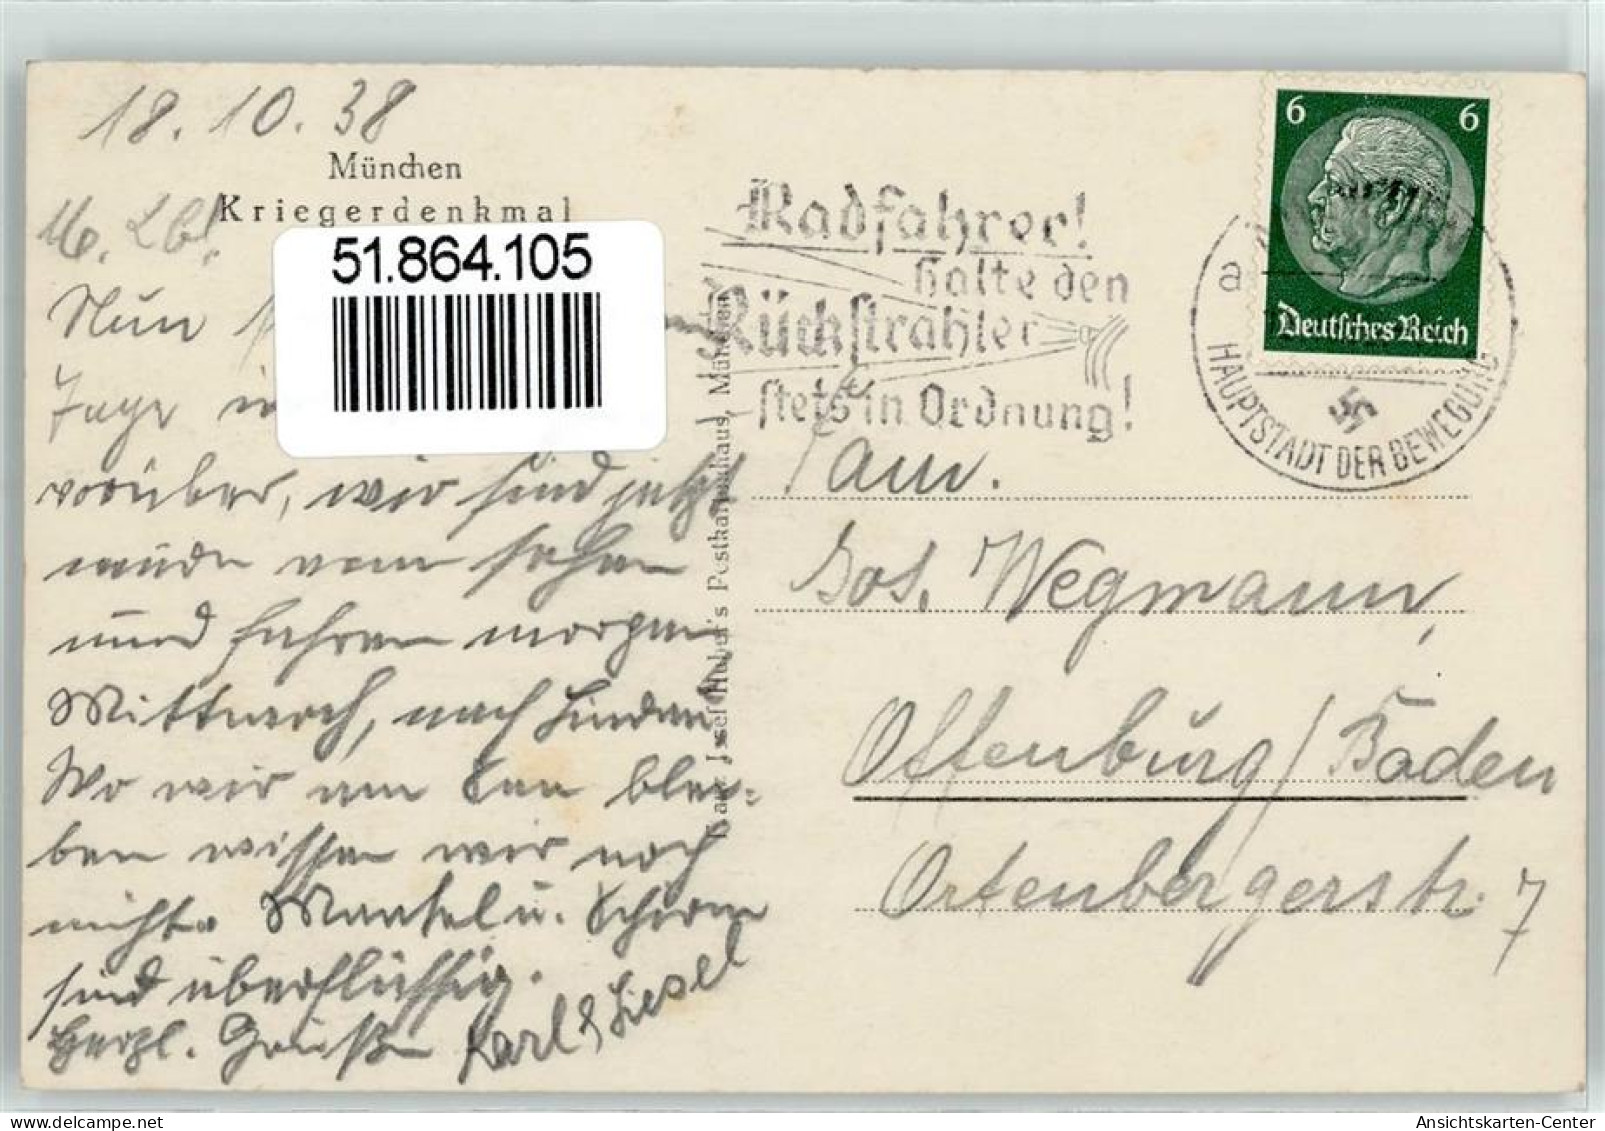 18.10.38
München
Kriegerdenkmal
M. Lb!
51.864.105
Nun
Tage in
vorüber, wir sind jetzt
müde vom sehen
und fahren morgen
Mittwoch, nach Lindau
Wo wir am See blei-
ben wissen wir noch
nicht. Mantel u. Schirm
sind überflüssig.
Herzl. Grüße Karl & Liesel
Josef Huber's Postkartenhaus, München
Radfahrer!
halte den
Rückstrahler
stets in Ordnung!
6 6
Deutsches Reich
a
HAUPTSTADT DER BEWEGUNG
Fam.
Jos. Wegmann,
Offenburg/Baden
Ortenbergerstr. 7
Ansichtskarten-Center